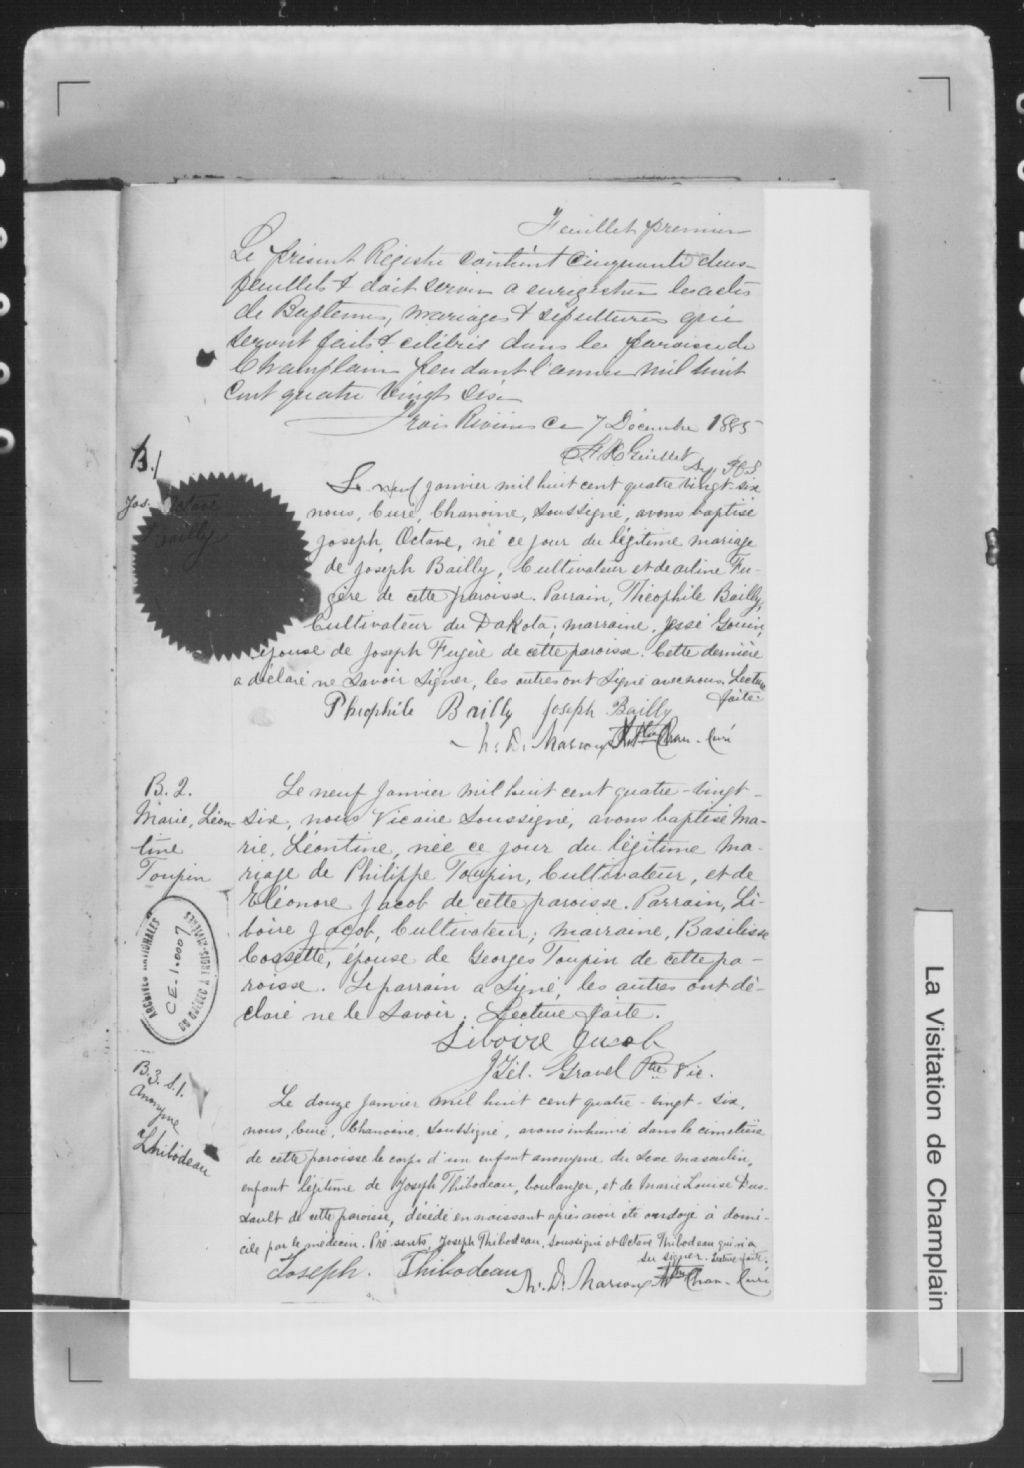 Feuillet premier
Le présent Registre contient cinquante deux
feuillets & doit servir a enrégistrer les actes
de Baptemes, mariages & sépultures qui
seront faits & célébrés dans la paroisse de
Champlain pendant l'année mil huit
cent quatre vingt six
Trois Rivières ce 7 Décembre 1885
Guillet
B.1
Jos. Octave
Bailly
Le neuf janvier mil huit cent quatre vingt-six
nous, Curé, Chanoine, soussigné, avons baptisé
Joseph, Octave, né ce jour du légitime mariage
de Joseph Bailly, Cultivateur et de Fu-
gère de cette paroisse. Parrain, Théophile Bailly,
Cultivateur du Dakota; marraine, Jessé Gouin,
épouse de Joseph Fugère de cette paroisse. Cette dernière
a déclaré ne savoir signer, les autres ont signé avec nous. Lecture
faite.
Théophile Bailly Joseph Bailly
Marcoux Ptre Chan. Curé
B. 2.
Marie, Léon-
tine
Toupin
Le neuf Janvier mil huit cent quatre-vingt-
six, nous Vicaire soussigné, avons baptisé Ma-
rie, Léontine, née ce jour du légitime ma-
riage de Philippe Toupin, Cultivateur, et de
Eléonore Jacob de cette paroisse. Parrain, Li-
boire Jacob, Cultivateur; marraine, Basilisse
Cossette, épouse de Georges Toupin de cette pa-
roisse. Le parrain a signé, les autres ont dé-
claré ne le savoir. Lecture faite.
Liboire Jacob
Gravel Ptre Vic.
ARCHIVES NATIONALES
CE.1.0007
DU QUÉBEC À TROIS-RIVIÈRES
B3. S.1.
Anonyme
Thibodeau
Le douze janvier mil huit cent quatre-vingt-six,
nous, Curé, Chanoine, soussigné, avons inhumé dans le cimetière
de cette paroisse le corps d'un enfant anonyme du sexe masculin,
enfant légitime de Joseph Thibodeau, boulanger, et de Marie Louise Dus-
sault de cette paroisse, décédé en naissant après avoir été ondoyé à domi-
cile par le médecin. Présents, Joseph Thibodeau, soussigné et Octave Thibodeau qui n'a
su signer. Lecture faite.
Joseph. Thibodeau Marcoux Ptre Chan. Curé
La Visitation de Champlain